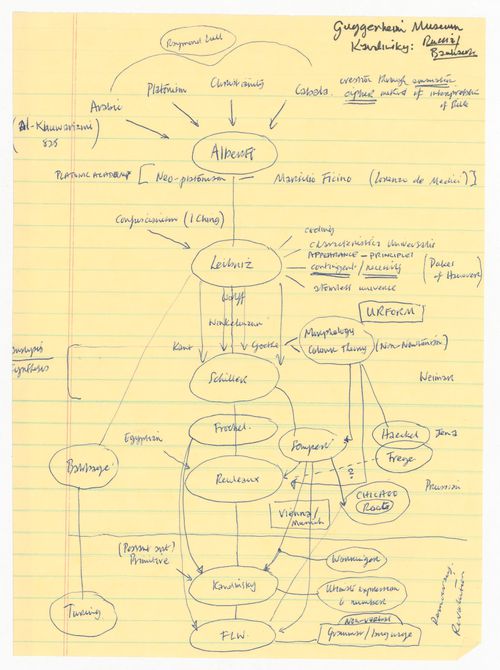 Guggenheim Museum
Kandinsky: Russia/
Bauhaus
Raymond Lull
Arabic
Platonism
Christianity
Cabala
creation through
cipher method of interpretation
of Bible
(Al-Khuwarizmi)
825
Alberti
PLATONIC ACADEMY [ Neo-platonism — Marsilio Ficino (Lorenzo de Medici) ]
Confucianism (I Ching)
Leibniz
coding
characteristica universalis
APPEARANCE – PRINCIPLE
contingent / necessity
(Dukes
of Hanover)
universe
Wolff
Winkelmann
URFORM
Kant
Goethe
Morphology
Colour Theory
(Non-Newtonian)
analysis
synthesis
Schiller
Weimar
Froebel
Egyptian
Semper
Haeckel
Jena
Frege
Babbage
Reuleaux
?
CHICAGO
Root
Prussian
Vienna/
Munich
(Peasant art)
Primitive
Worringer
Kandinsky
Ultimate expression
is number
Turing
FLW
Non-verbal
Grammar/language
Revolution